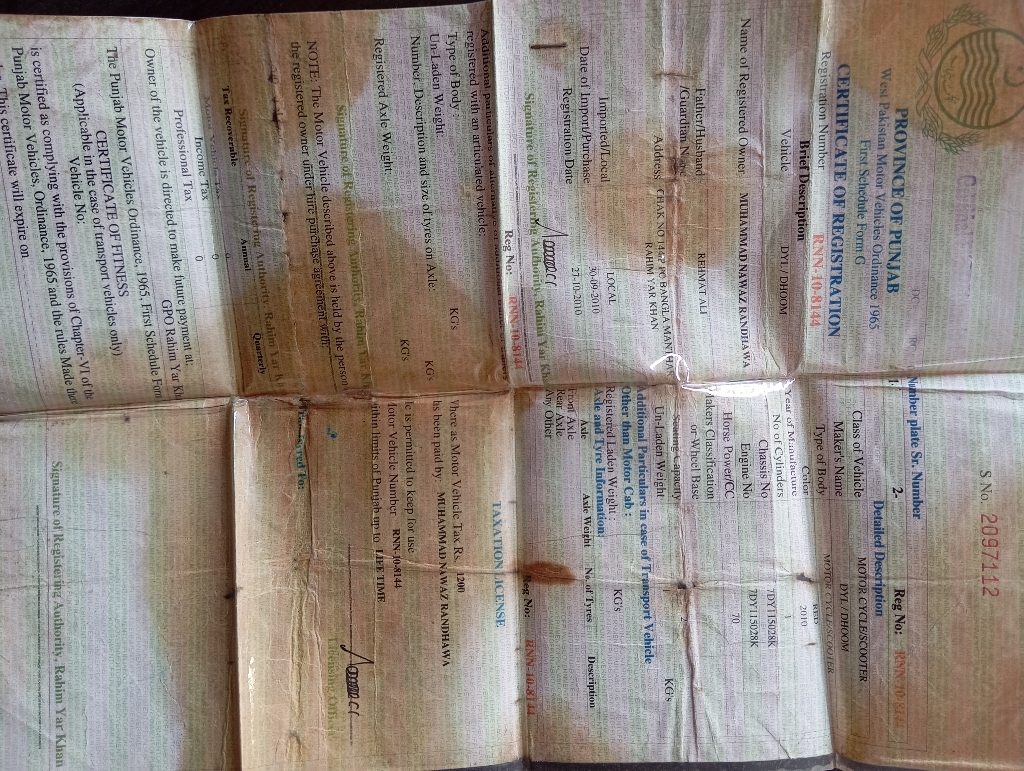 S No. 2097112
PROVINCE OF PUNJAB
West Pakistan Motor Vehicles Ordinance 1965
First Schedule Form G
CERTIFICATE OF REGISTRATION
Registration Number RNN-10-8144
Brief Description
Vehicle DYL / DHOOM
Name of Registered Owner MUHAMMAD NAWAZ RANDHAWA
Father/Husband REHMAT ALI
/Guardian Name
Address CHAK NO 142 PC BANGLA MANTHAR
RAHIM YAR KHAN
Imported/Local LOCAL
Date of Import/Purchase 30-09-2010
Registration Date 21-10-2010
Signature of Registering Authority, Rahim Yar Kh
Number plate Sr. Number
2- Reg No: RNN-10-8144
Detailed Description
Class of Vehicle MOTOR CYCLE/SCOOTER
Maker's Name DYL / DHOOM
Type of Body MOTOR CYCLE/SCOOTER
Color RED
Year of Manufacture 2010
No of Cylinders 1
Chassis No 7DY115028K
Engine No 7DY115028K
Horse Power/CC 70
Makers Classification
or Wheel Base
Seating Capacity 2
Un-Laden Weight KG's
Additional Particulars in case of Transport Vehicle
Other than Motor Cab :
Registered Laden Weight : KG's
Axle and Tyre Information:
Axle Axle Weight No. of Tyres Description
Front Axle
Rear Axle
Any Other
Reg No: RNN-10-8144
Additional particulars of
registered with an articulated vehicle:
Type of Body :
Un-Laden Weight: KG's KG's
Number, Description and size of tyres on Axle:
Registered Axle Weight: KG's
Signature of Registering Authority, Rahim Yar K
NOTE: The Motor Vehicle described above is held by the person
the registered owner under hire purchase agreement with
Signature of Registering Authority, Rahim Yar Kh
Reg No: RNN-10-8144
TAXATION LICENSE
Where as Motor Vehicle Tax Rs. 1200
has been paid by: MUHAMMAD NAWAZ RANDHAWA
He is permitted to keep for use
Motor Vehicle Number RNN-10-8144
within limits of Punjab up to LIFE TIME
Licensing Officer
Transferred To:
Tax Recoverable Annual Quarterly
0
Income Tax 0
Professional Tax 0
Owner of the vehicle is directed to make future payment at:
GPO Rahim Yar Kh
The Punjab Motor Vehicles Ordinance, 1965, First Schedule Form
CERTIFICATE OF FITNESS
(Applicable in the case of transport vehicles only)
Vehicle No:
is certified as complying with the provisions of Chapter-VI of the
Punjab Motor Vehicles, Ordinance, 1965 and the rules Made there
This certificate will expire on
Signature of Registering Authority, Rahim Yar Khan